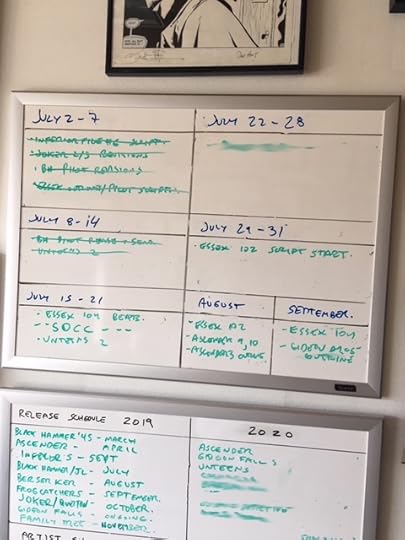 JULY 2-7
- INFERIOR FIVE #6 SCRIPT
- JOKER 2/3 REVISIONS
- BH PILOT REVISIONS
- ESSEX OUTLINE/PILOT SCRIPT
JULY 8-14
UNTERNS 2
JULY 15-21
- ESSEX 104 BEATS.
- - SDCC - - -
- UNTERNS 2
JULY 22-28
JULY 29-31
- ESSEX 102 SCRIPT START.
AUGUST
- ESSEX 102
- ASCENDER 9, 10
- ASCENDER
SEPTEMBER
- ESSEX 104
- GIDEON FALLS
OUTLINE
RELEASE SCHEDULE 2019
BLACK HAMMER '45 - MARCH
ASCENDER - APRIL
INFERIOR 5 - SEPT
BLACK HAMMER/JL - JULY
BERSERKER - AUGUST
FROGCATCHERS - SEPTEMBER.
JOKER/ - OCTOBER.
GIDEON FALLS - ONGOING.
FAMILY TREE - NOVEMBER.
2020
ASCENDER
GIDEON FALLS
UNTERNS